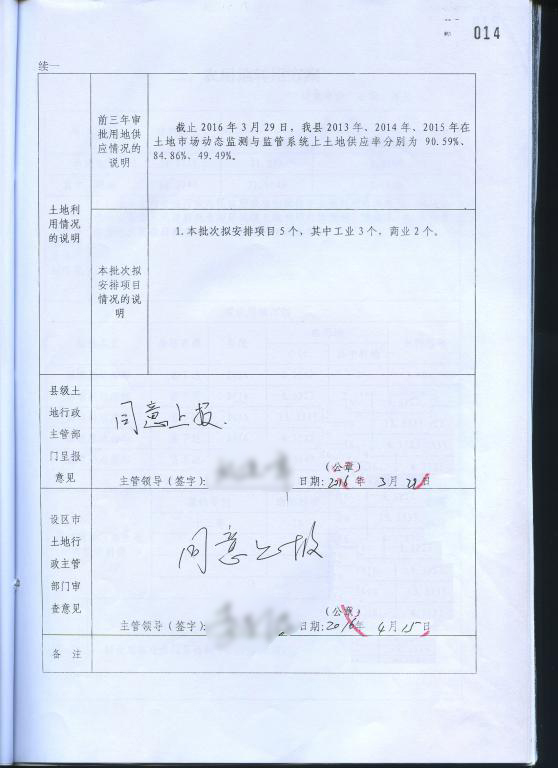 014
续一
土地利
用情况
的说明
前三年审
批用地供
应情况的
说明
截止2016年3月29日，我县2013年、2014年、2015年在
土地市场动态监测与监管系统上土地供应率分别为 90.59%、
84.86%、49.49%。
本批次拟
安排项目
情况的说
明
1.本批次拟安排项目5个，其中工业3个，商业2个。
县级土
地行政
主管部
门呈报
意见
同意上报.
（公章）
主管领导（签字）：
日期：2016年 3月 29日
设区市
土地行
政主管
部门审
查意见
同意上报
（公章）
主管领导（签字）：
日期：2016年 4月15日
备 注